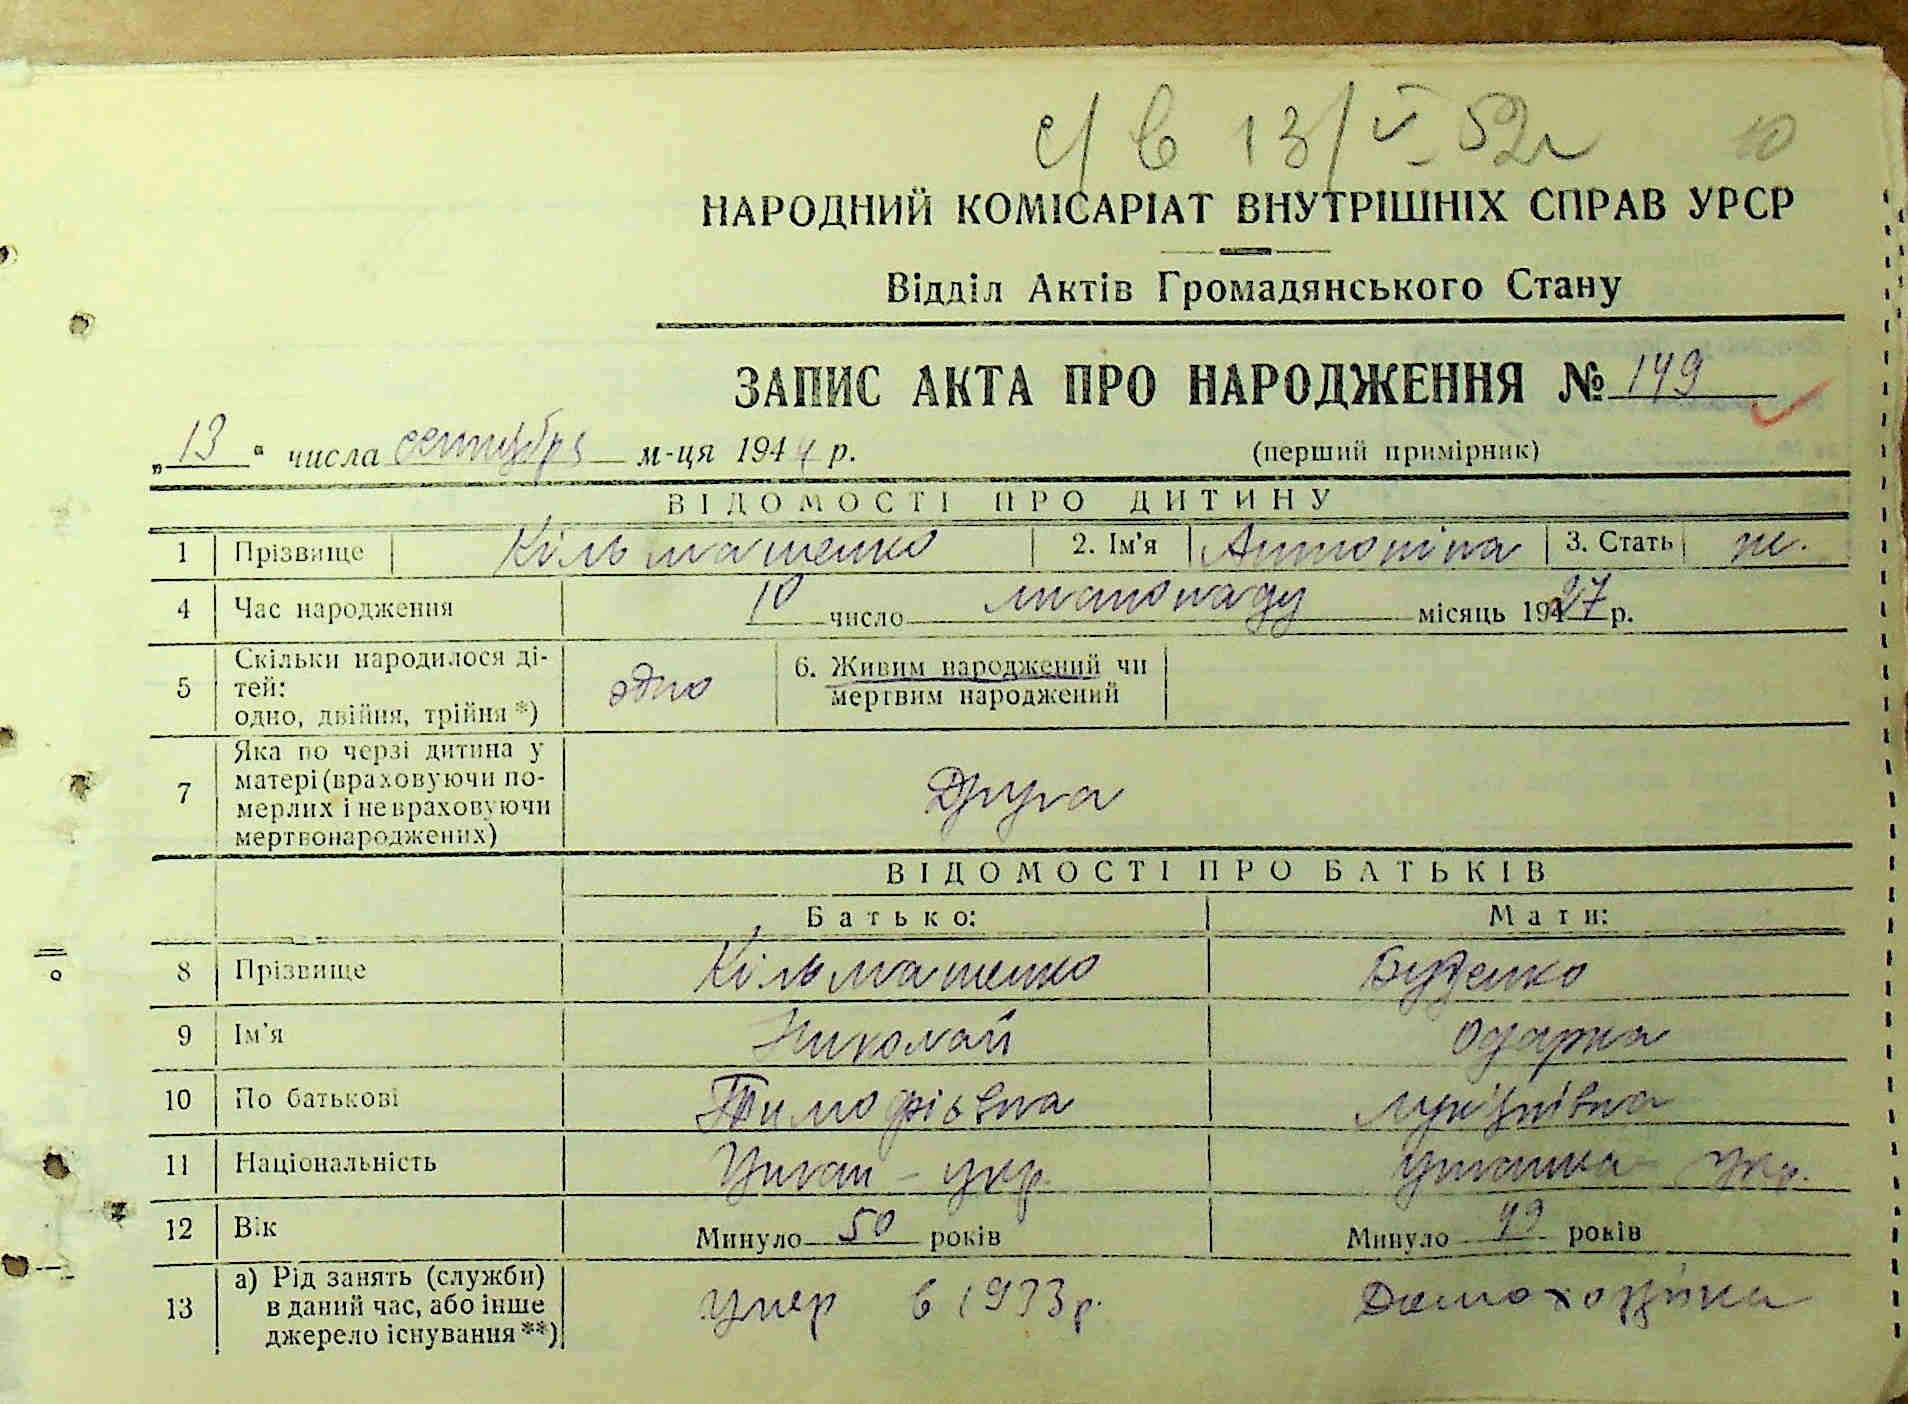 с/в 13/V-52г 10
НАРОДНИЙ КОМІСАРІАТ ВНУТРІШНІХ СПРАВ УРСР
Відділ Актів Громадянського Стану
ЗАПИС АКТА ПРО НАРОДЖЕННЯ № 149
„13“ числа сентября м-ця 1944 р. (перший примірник)
ВІДОМОСТІ ПРО ДИТИНУ
1 Прізвище Кільмашенко 2. Ім'я Антоніна 3. Стать ж.
4 Час народження 10 число листопаду місяць 1927 р.
5 Скільки народилося ді-
тей:
одно, двійня, трійня *) одно 6. Живим народжений чи
мертвим народжений
7 Яка по черзі дитина у
матері (враховуючи по-
мерлих і не враховуючи
мертвонароджених) Друга
ВІДОМОСТІ ПРО БАТЬКІВ
Батько: Мати:
8 Прізвище Кільмашенко Буденко
9 Ім'я Николай Одарка
10 По батькові Тимофіевна
11 Національність укр. укр.
12 Вік Минуло 50 років Минуло 49 років
13 а) Рід занять (служби)
в даний час, або інше
джерело існування **) умер в 1933 р. Домохозяйка